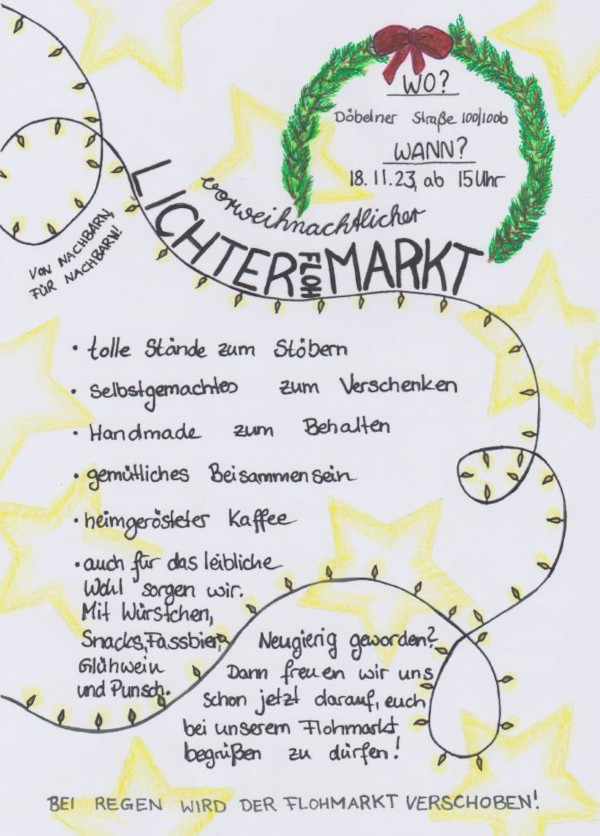 WO?
Döbelner Straße 100/100b
WANN?
18.11.23, ab 15 Uhr
VON NACHBARN,
FÜR NACHBARN!
vorweihnachtlicher
LICHTER FLOH MARKT
· tolle Stände zum Stöbern
· Selbstgemachtes zum Verschenken
· Handmade zum Behalten
· gemütliches Beisammensein
· heimgerösteter Kaffee
· auch für das leibliche
Wohl sorgen wir.
Mit Würstchen,
Snacks, Fassbier,
Glühwein
und Punsch.
Neugierig geworden?
Dann freuen wir uns
schon jetzt darauf, euch
bei unserem Flohmarkt
begrüßen zu dürfen!
BEI REGEN WIRD DER FLOHMARKT VERSCHOBEN!